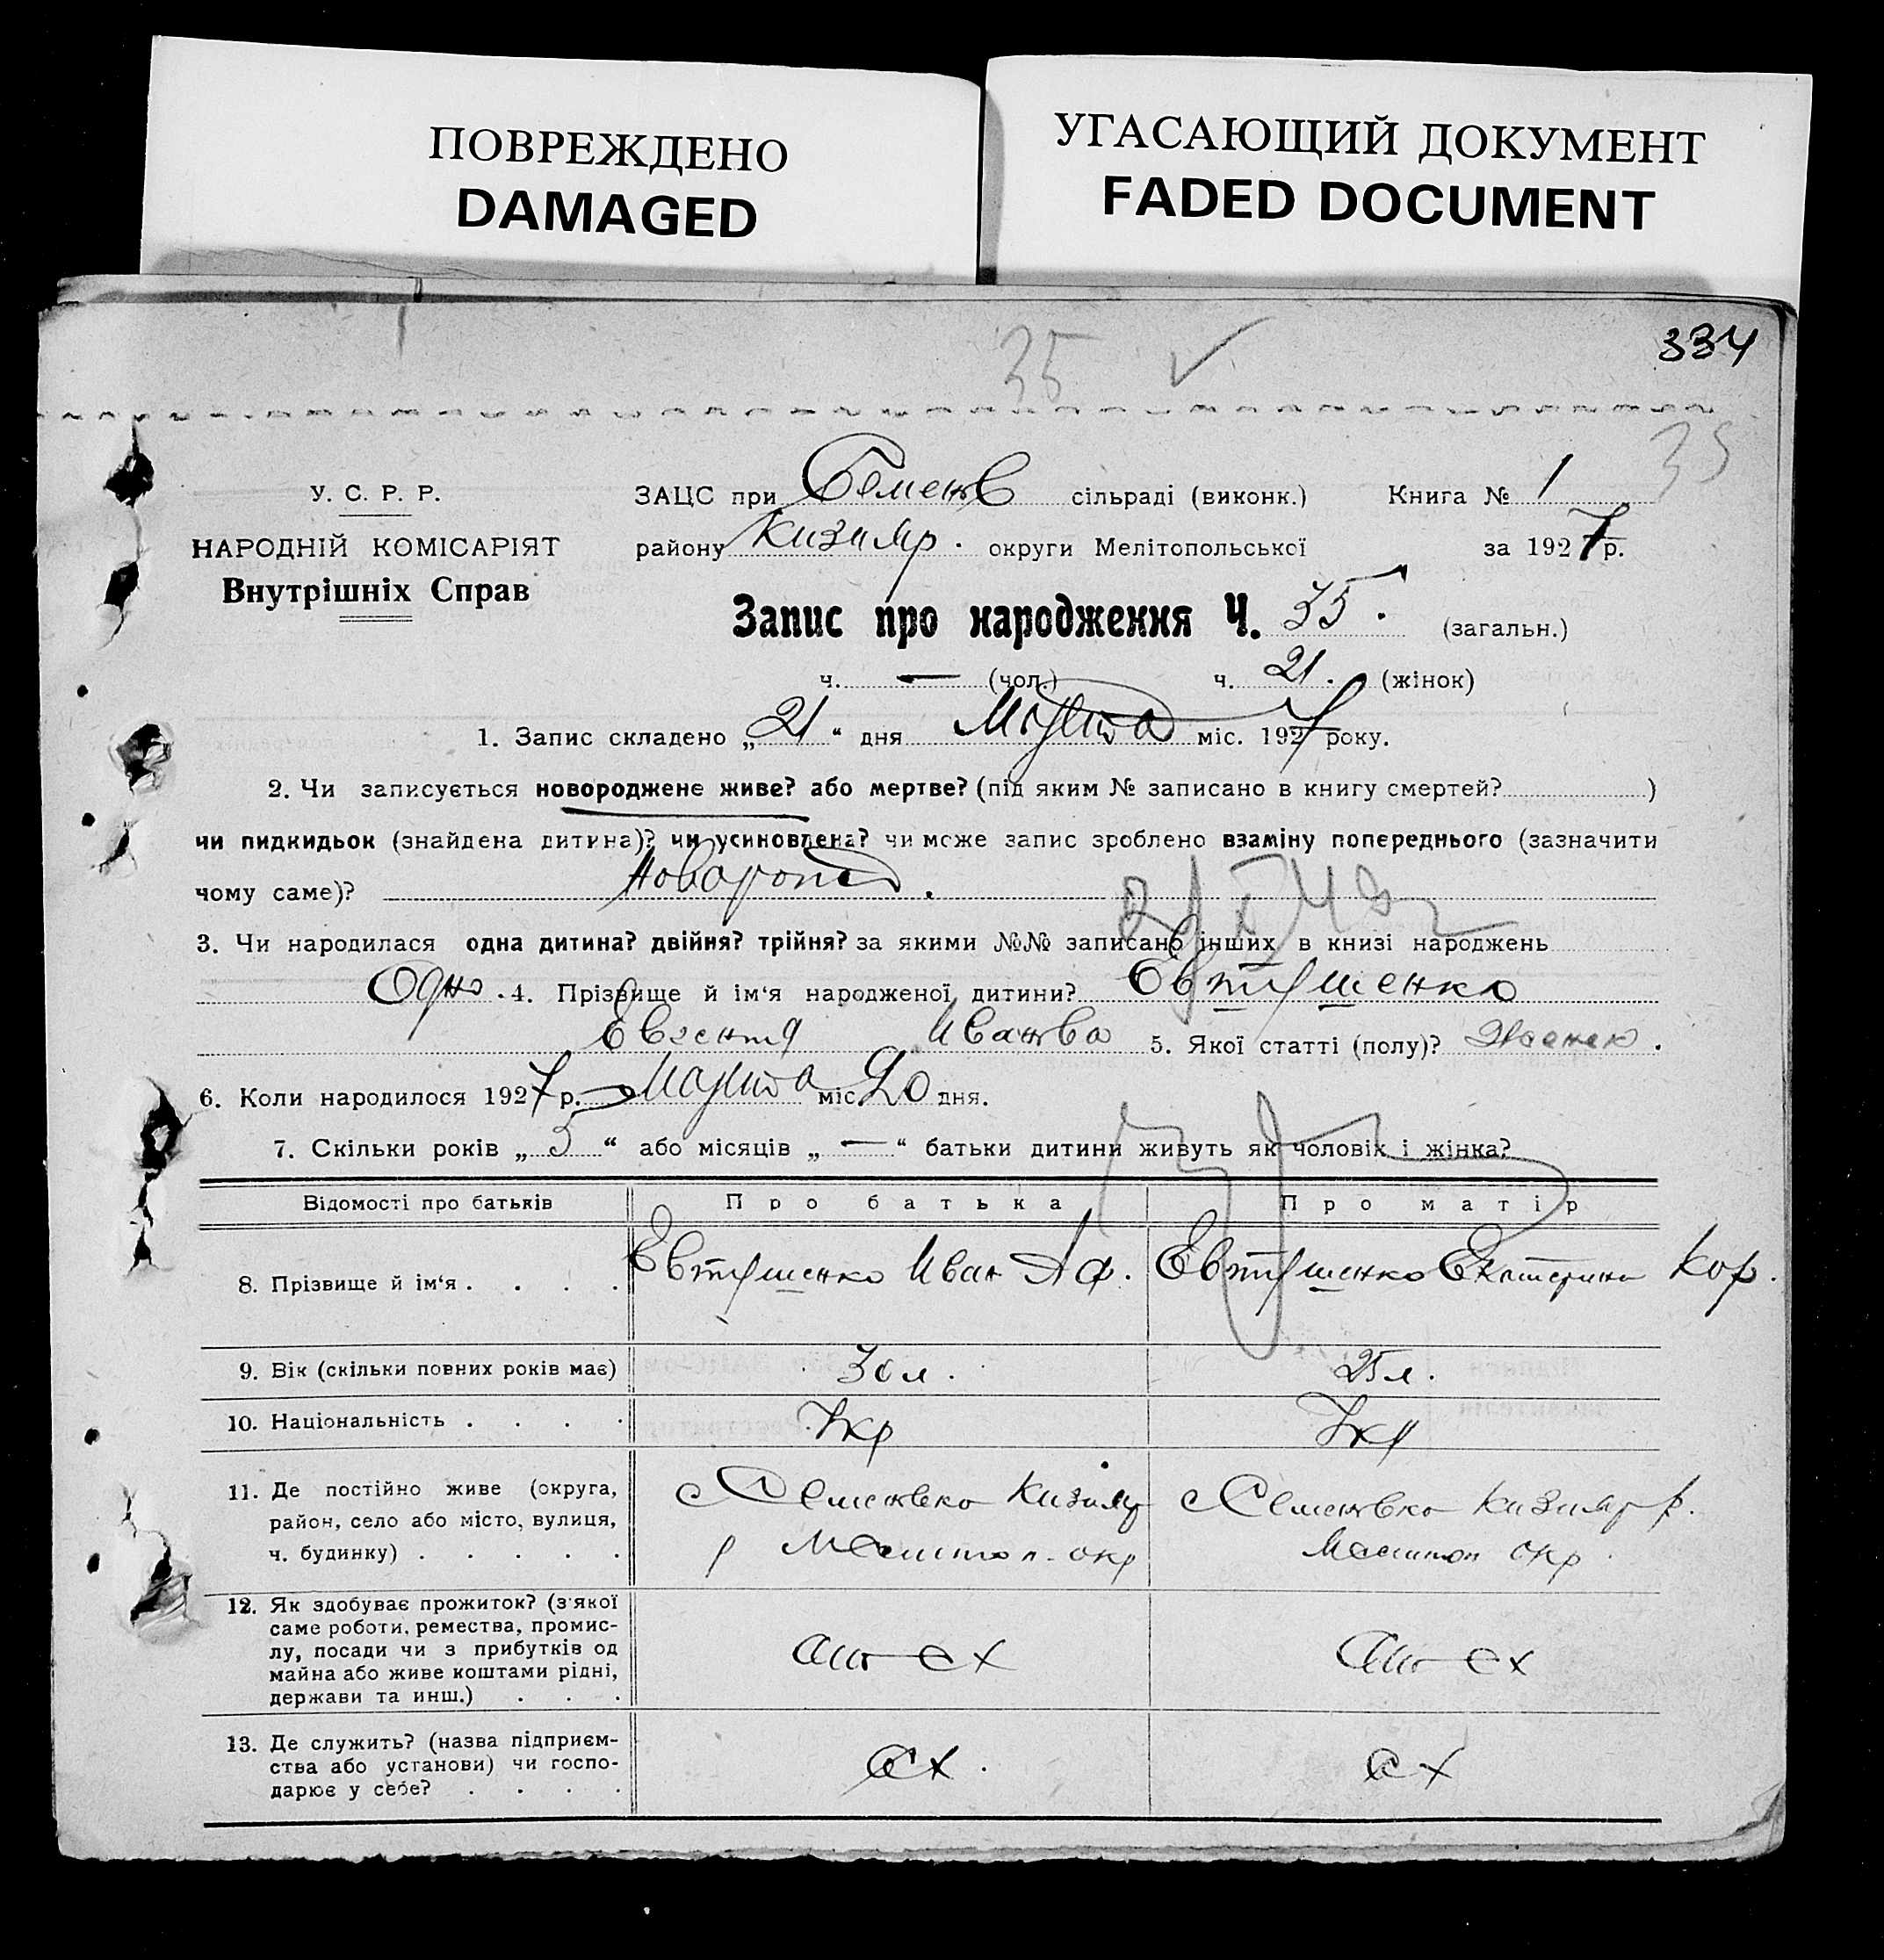 ПОВРЕЖДЕНО
DAMAGED
УГАСАЮЩИЙ ДОКУМЕНТ
FADED DOCUMENT
334
35
35
У. С. Р. Р.
НАРОДНІЙ КОМІСАРІЯТ
Внутрішніх Справ
ЗАЦС при Семенов сільраді (виконк.) Книга № 1
району Кизияр. округи Мелітопольської за 1927 р.
Запис про народження Ч. 35. (загальн.)
ч. — (чол.) ч. 21. (жінок)
1. Запис складено „21“ дня Марта міс. 1927 року.
2. Чи записується новороджене живе? або мертве? (під яким № записано в книгу смертей? )
чи пидкидьок (знайдена дитина)? чи усиновлена? чи може запис зроблено взаміну попереднього (зазначити
чому саме)?
3. Чи народилася одна дитина? двійня? трійня? за якими №№ записано інших в книзі народжень
Одно. 4. Прізвище й ім‘я народженої дитини? Евтушенко
Евгения Иванова 5. Якої статті (полу)? Женск.
6. Коли народилося 1927 р. Марта міс. 20 дня.
7. Скільки років „5“ або місяців „—“ батьки дитини живуть як чоловік і жінка?
Відомості про батьків Про батька Про матір
8. Прізвище й ім‘я . . . . Евтушенко Иван Аф. Евтушенко Екатерина Кор.
9. Вік (скільки повних років має) 30 л. 25 л.
10. Національність . . . . Укр Укр
11. Де постійно живе (округа, с Семеновка Кизияр с Семеновка Кизияр р.
район, село або місто, вулиця,
ч. будинку) . . . . . р Мелитоп. окр Мелитоп окр.
12. Як здобуває прожиток? (з‘якої
саме роботи, ремества, промис-
лу, посади чи з прибутків од
майна або живе коштами рідні,
держави та инш.) . . .
13. Де служить? (назва підприєм-
ства або установи) чи госпо- сх. сх
дарює у себе? . . . .